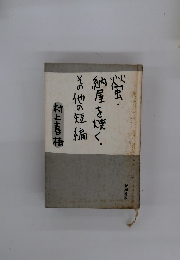 螢・
納屋を焼く・
その他の短編
村上春樹
新潮社